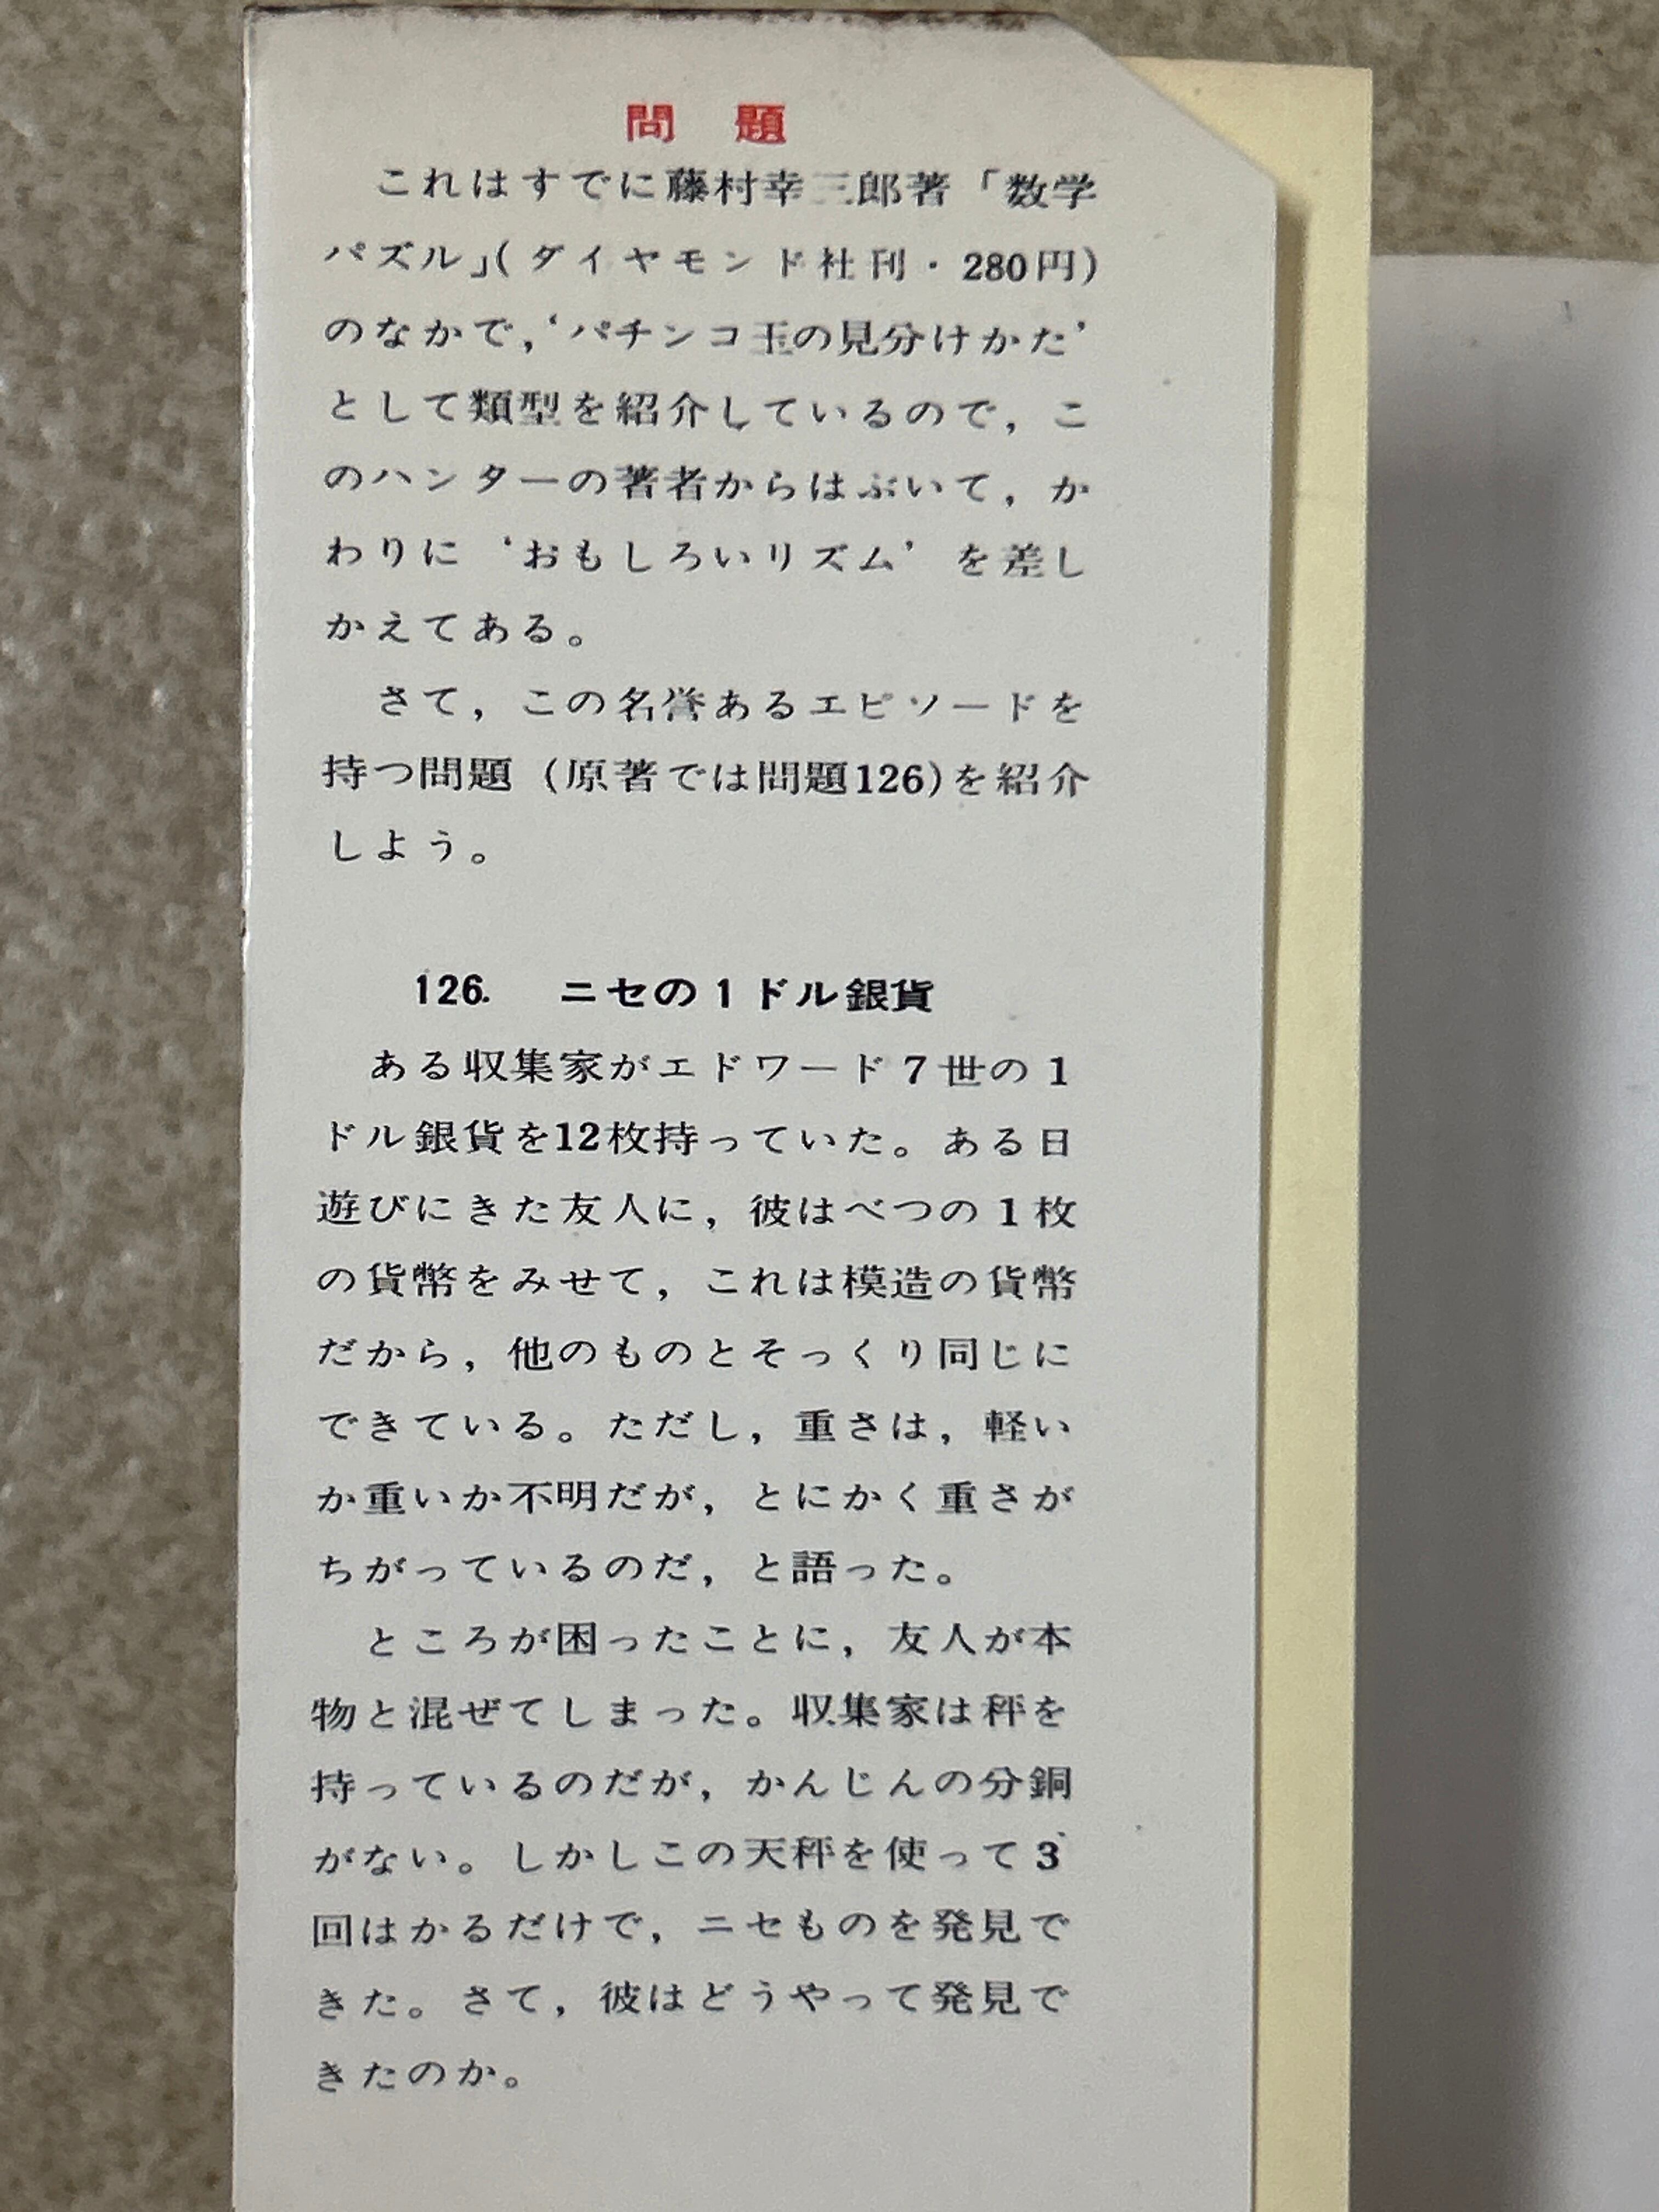 問題
これはすでに藤村幸三郎著「数学
パズル」(ダイヤモンド社刊・280円)
のなかで,‘パチンコ玉の見分けかた’
として類型を紹介しているので,こ
のハンターの著者からはぶいて,か
わりに‘おもしろいリズム’を差し
かえてある。
さて,この名誉あるエピソードを
持つ問題(原著では問題126)を紹介
しよう。
126. ニセの1ドル銀貨
ある収集家がエドワード7世の1
ドル銀貨を12枚持っていた。ある日
遊びにきた友人に,彼はべつの1枚
の貨幣をみせて,これは模造の貨幣
だから,他のものとそっくり同じに
できている。ただし,重さは,軽い
か重いか不明だが,とにかく重さが
ちがっているのだ,と語った。
ところが困ったことに,友人が本
物と混ぜてしまった。収集家は秤を
持っているのだが,かんじんの分銅
がない。しかしこの天秤を使って3
回はかるだけで,ニセものを発見で
きた。さて,彼はどうやって発見で
きたのか。